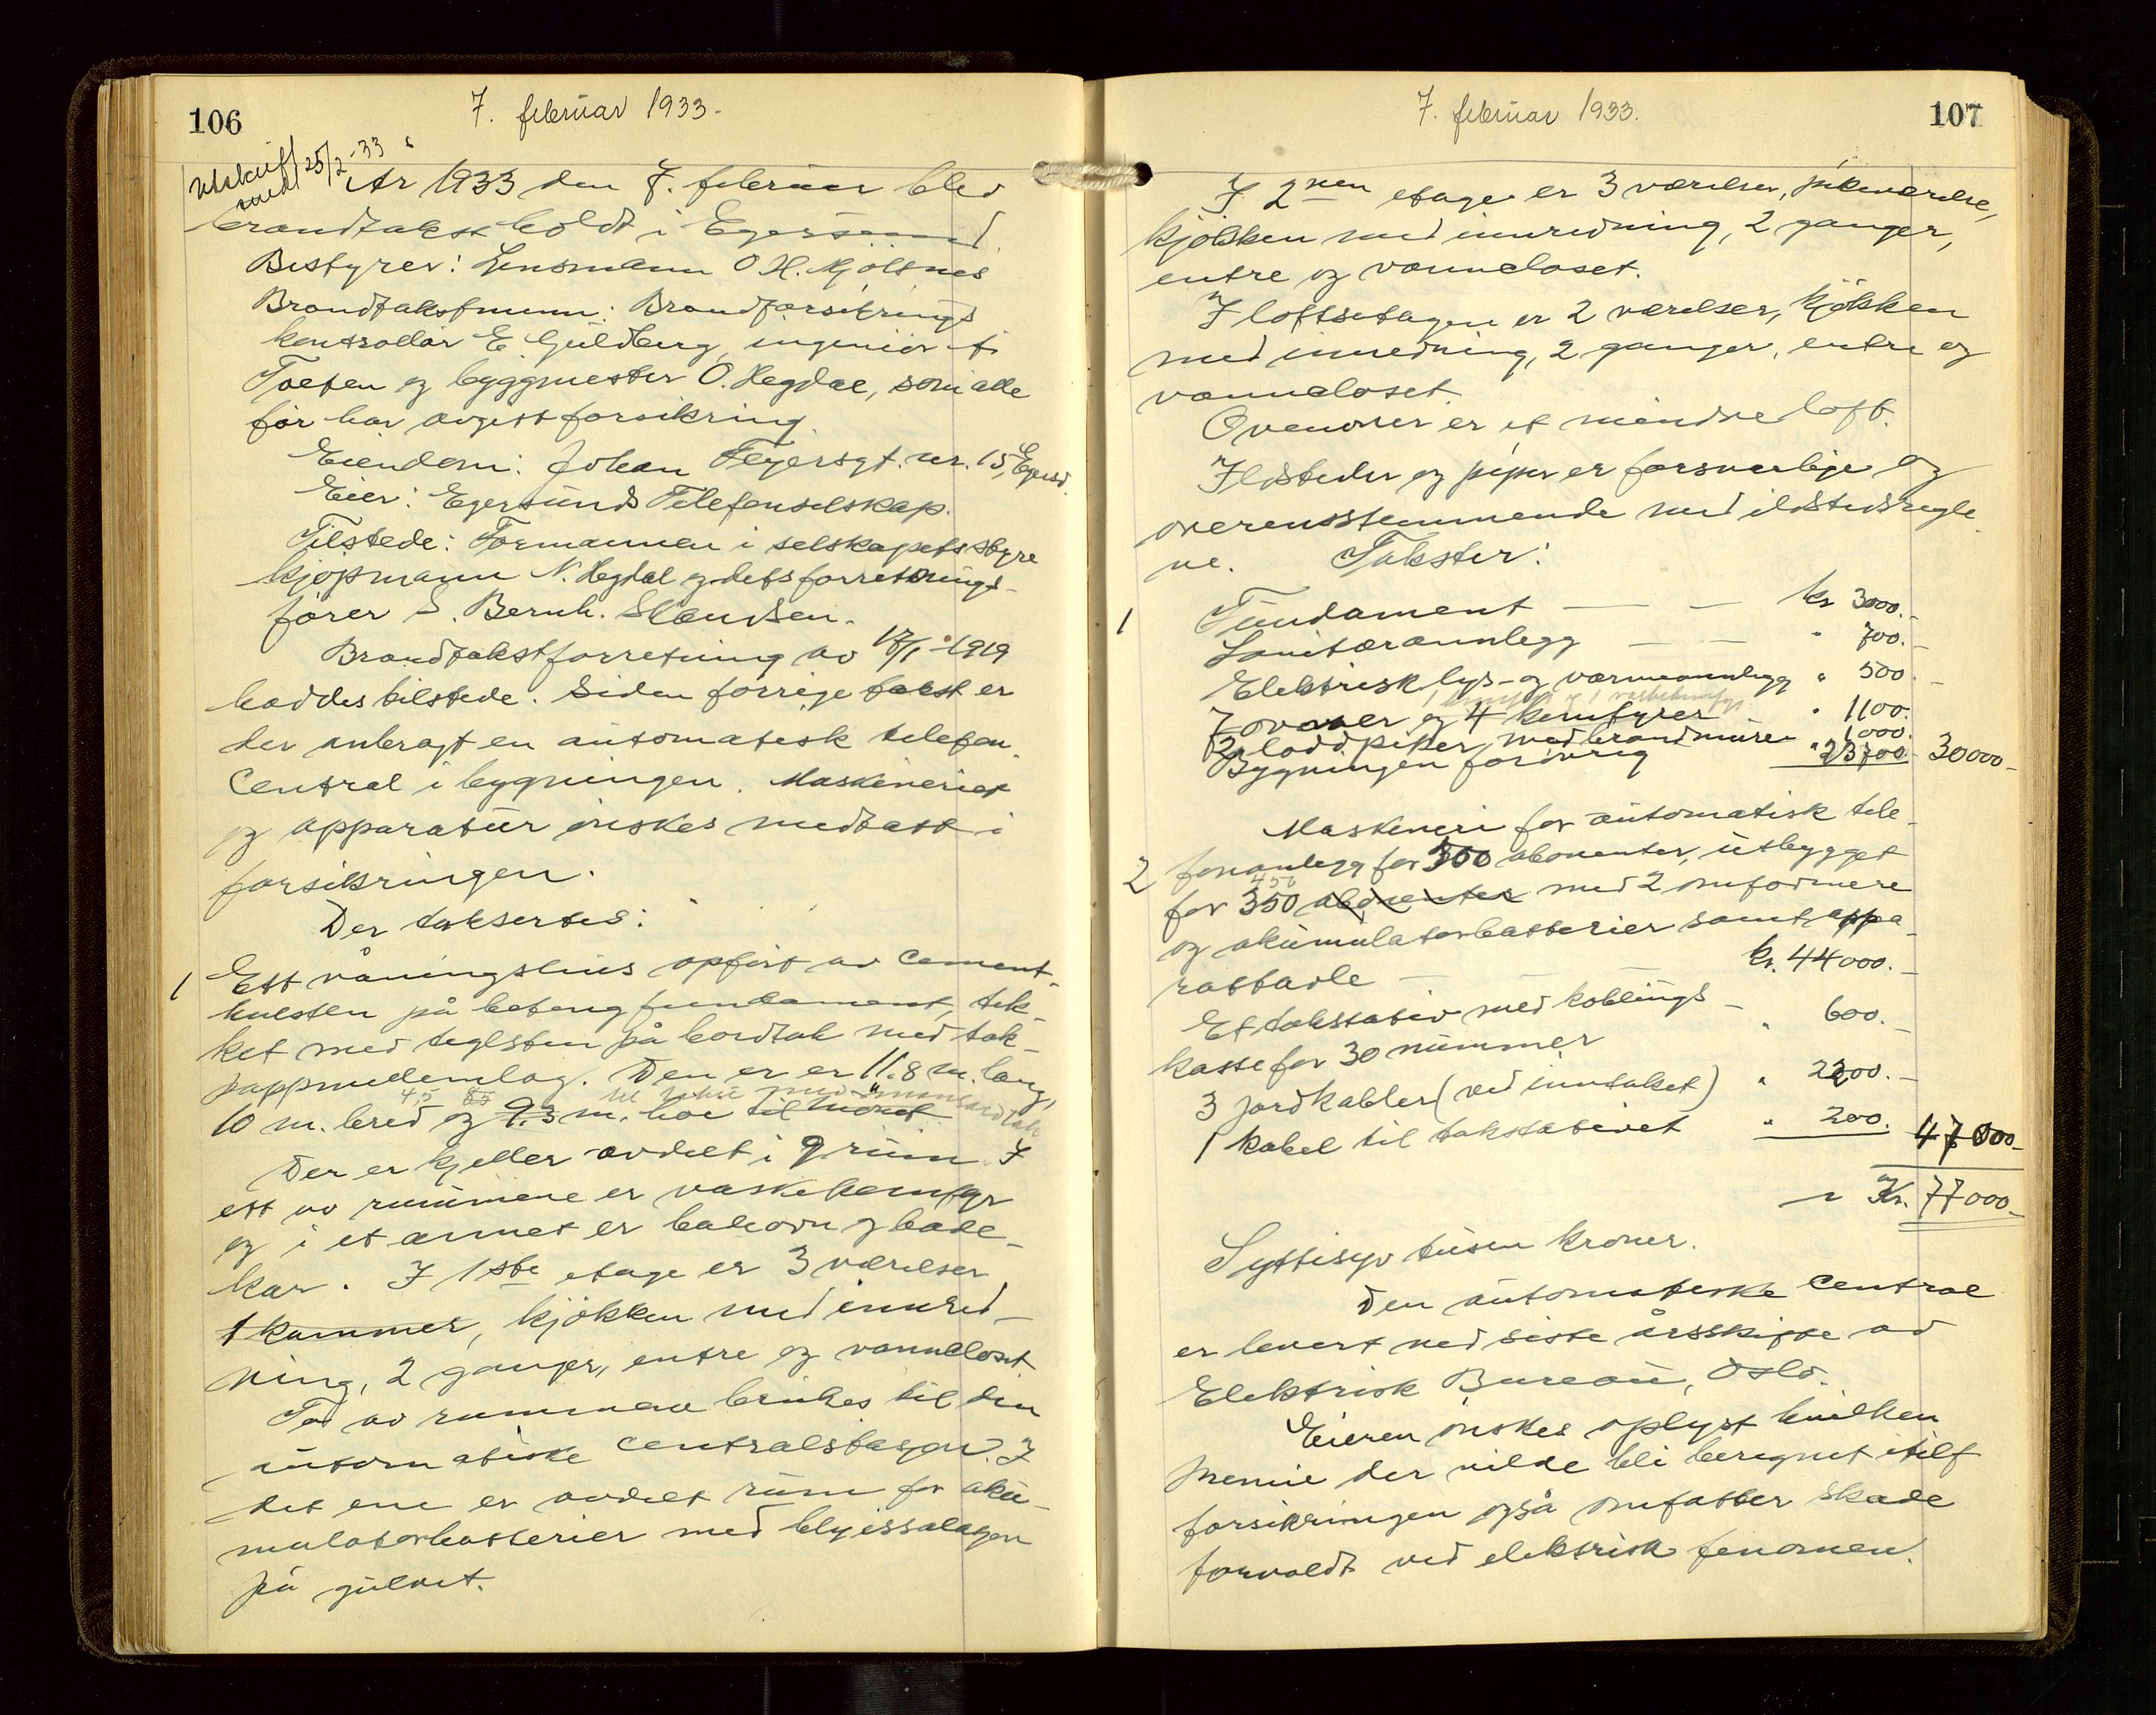 106
7. februar 1933.
Utskrift
sendt 25/2-33
År 1933 den 7. februar blev
brandtakst holdt i Egersund.
Bestyrer: Lensmann O. H. Mjölsnes
Brandtakstmenn: Brandforsikrings
kontrollör E. Guldberg, ingeniör
Toften og byggmester O. Hegdal, som alle
för har avgitt forsikring.
Eiendom: Johan Feyersgt. nr. 15, Egersd.
Eier: Egersunds Telefonselskap.
Tilstede: Formannen i selskapets styre
kjøpmann N. Hegdal og dets forretnings-
förer S. Bernh. Svendsen.
Brandtakstforretning av 17/1-1919
haddes tilstede. Siden forrige takst er
der anbragt en automatisk telefon-
central i bygningen. Maskineriet
og apparatur önskes medtatt i
forsikringen.
Der taksertes:
1 Ett våningshus opfört av cement-
hulsten på betongfundament, tek-
ket med teglsten på bordtak med tak-
pappmellemlag. Den er er 11.8 m. lang,
4,5 8,5 til mansardtak
10 m. bred og 9.3 m. höi til mönet
Der er kjeller avdelt i 9 rum. I
ett av rummene er vaskekomfyr
og i et annet er badeovn og bade-
kar. I 1ste etage er 3 værelser
1 kammer, kjökken med innred-
ning, 2 ganger, entre og vanncloset
To av rummene brukes til den
automatiske centralstasjon. I
det ene er avdelt rum for aku-
mulatorbatterier med blyissalagen
på gulvet.
107
7. februar 1933.
I 2nen etage er 3 værelser, pikeværelse,
kjökken med innredning, 2 ganger,
entre og vanncloset.
I loftsetagen er 2 værelser, kjökken
med innredning, 2 ganger, entre og
vanncloset.
Ovenover er et mindre loft.
Ildsteder og piper er forsvarlige og
overensstemmende med ildstedsregle
ne. Takster:
1 Fundament — — kr 3000.-
Sanitæranlegg — — " 700.-
Elektrisk lys- og varmeanlegg " 500.-
7 ovner og 4 komfyrer " 1100.
2 lodd. piper, med brandmure 1000.
Bygningen forövrig " 23700 30000-
Maskineri for automatisk tele-
2 fonanlegg for 500 abonenter, utbygget
450
for 350 abonenter med 2 omformere
og akumulatorbatterier samt appa-
rattavle — — kr. 44000.-
Et takstativ med koblings-
kasse for 30 nummer " 600.-
3 jordkabler (ved inntaket) " 2200.-
1 kabel til takstativet " 200. 47000-
Kr. 77000-
Syttisyv tusen kroner.
Den automatiske central
er levert ved siste årsskifte av
Elektrisk Bureau, Oslo.
Eieren önsker oplyst hvilken
premie der vilde bli beregnet itilf
forsikringen også omfatter skade
forvoldt ved elektrisk fenomen.